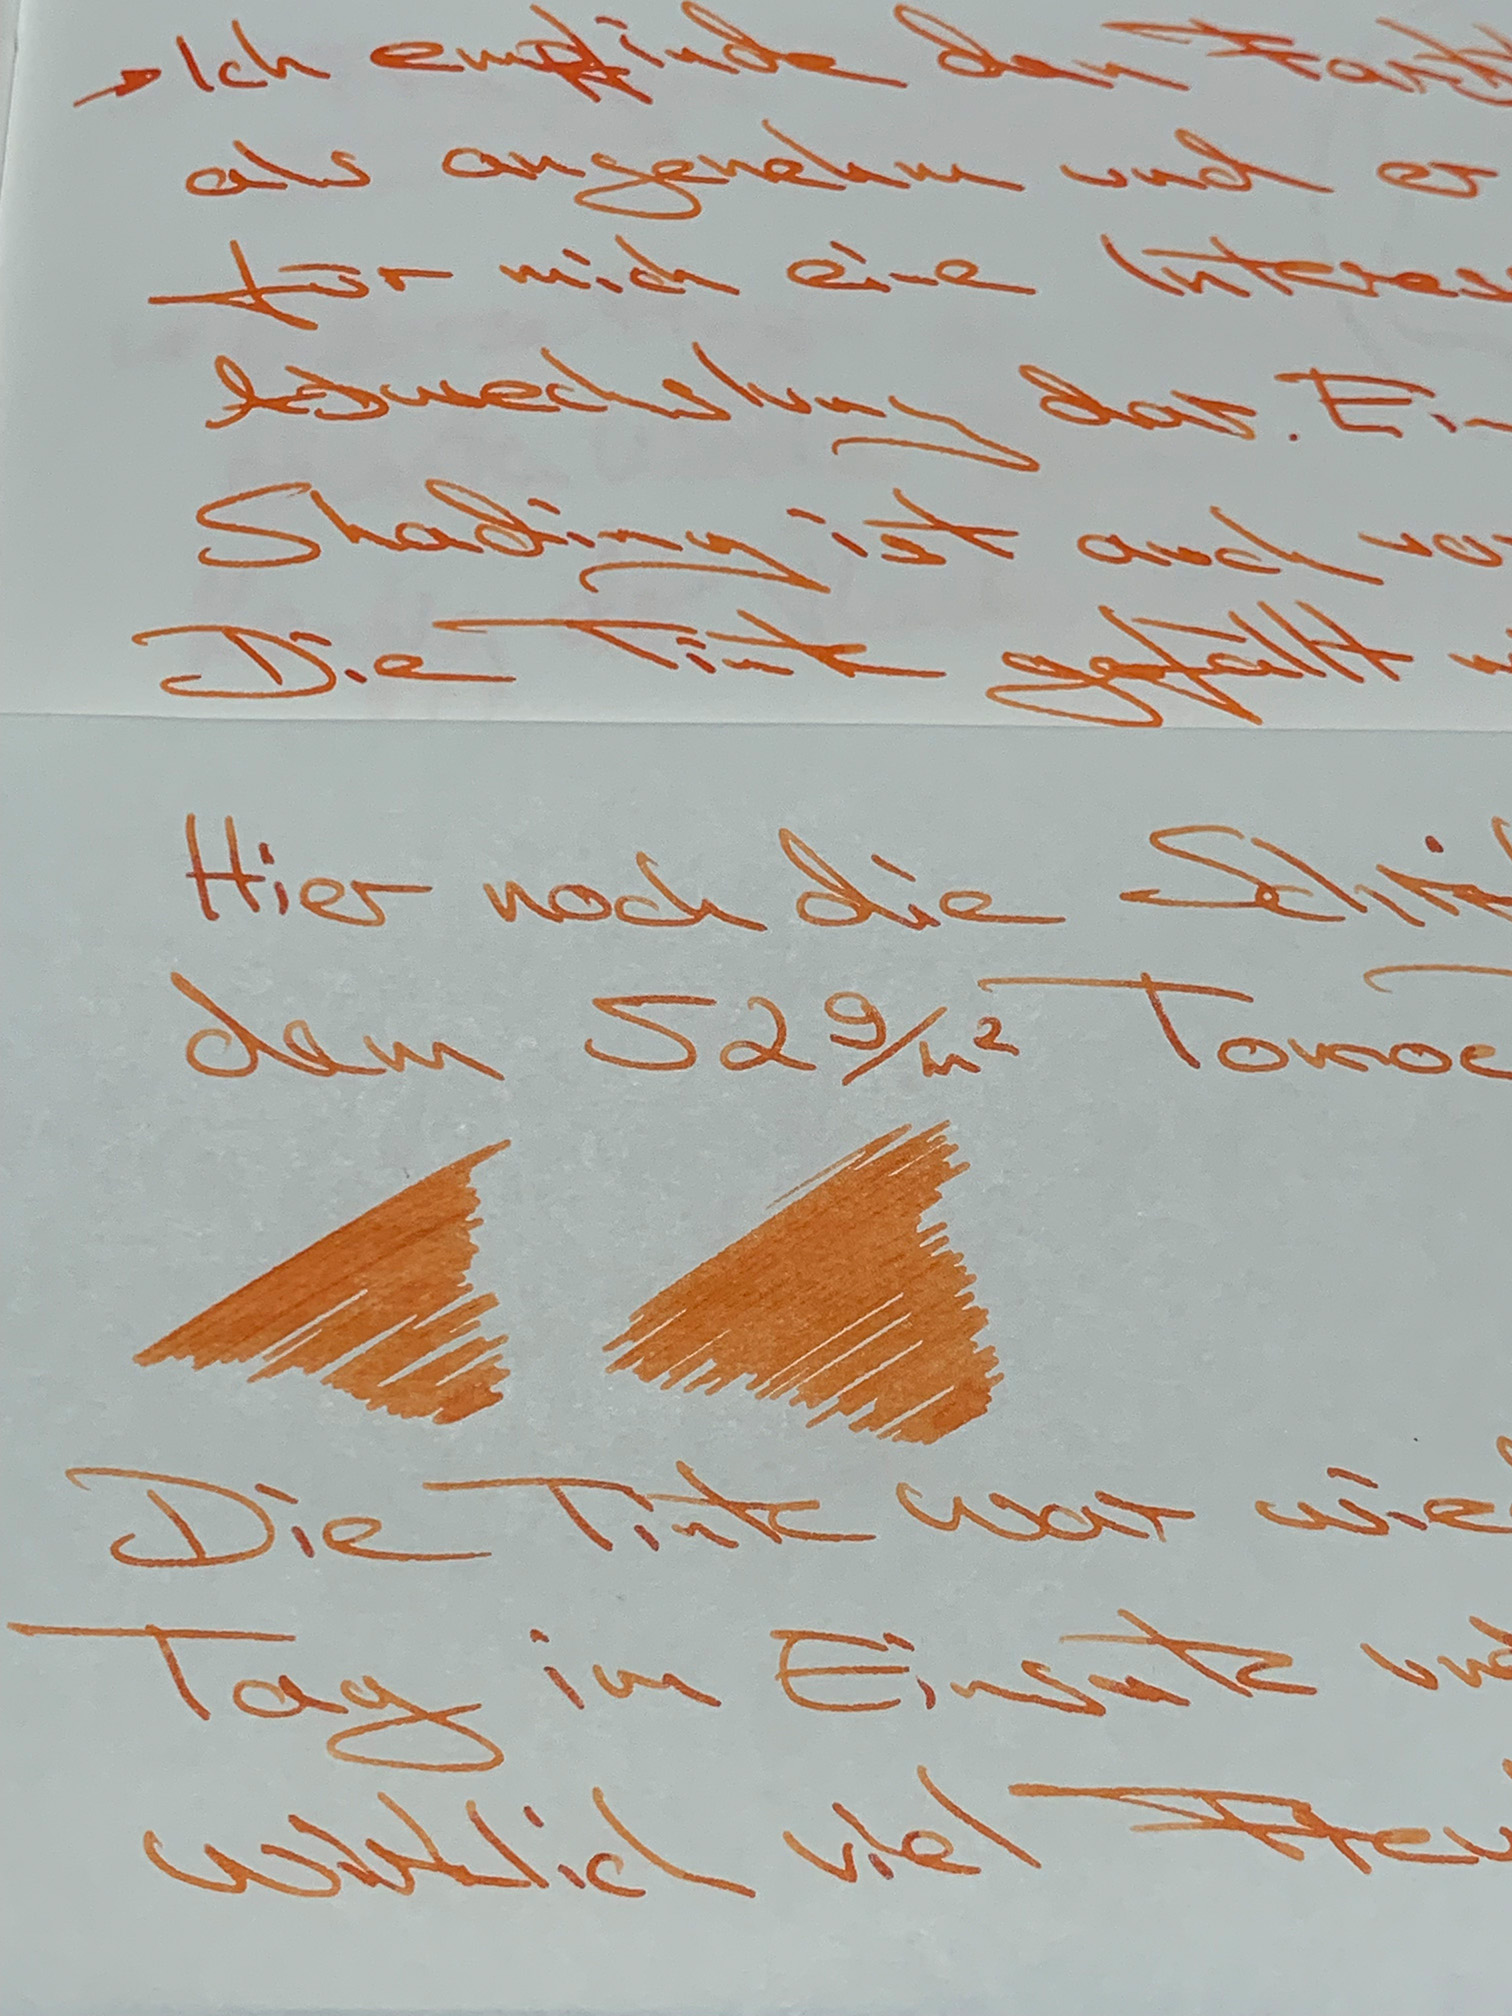 Ich empfinde den Farbt
als angenehm und er
für mich eine Interes
Abwechslung dar. Ein
Shading ist auch vor
Die Tinte gefällt
Hier noch die
dem 52 g/m² Tomoe
Die Tinte war wie
Tag im Einsatz und
wirklich viel Freu